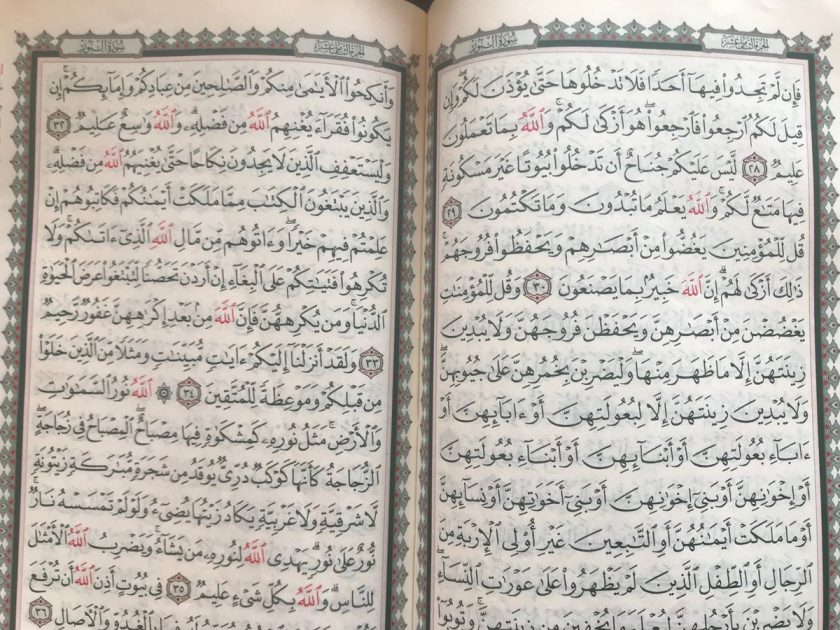 الجزء الثامن عشر سورة النور
فَإِن لَّمْ تَجِدُوا۟ فِيهَآ أَحَدًا فَلَا تَدْخُلُوهَا حَتَّىٰ يُؤْذَنَ لَكُمْ ۖ وَإِن
قِيلَ لَكُمُ ٱرْجِعُوا۟ فَٱرْجِعُوا۟ ۖ هُوَ أَزْكَىٰ لَكُمْ ۚ وَٱللَّهُ بِمَا تَعْمَلُونَ
عَلِيمٌ ٢٨ لَّيْسَ عَلَيْكُمْ جُنَاحٌ أَن تَدْخُلُوا۟ بُيُوتًا غَيْرَ مَسْكُونَةٍ
فِيهَا مَتَـٰعٌ لَّكُمْ ۚ وَٱللَّهُ يَعْلَمُ مَا تُبْدُونَ وَمَا تَكْتُمُونَ ٢٩
قُل لِّلْمُؤْمِنِينَ يَغُضُّوا۟ مِنْ أَبْصَـٰرِهِمْ وَيَحْفَظُوا۟ فُرُوجَهُمْ ۚ
ذَٰلِكَ أَزْكَىٰ لَهُمْ ۗ إِنَّ ٱللَّهَ خَبِيرٌۢ بِمَا يَصْنَعُونَ ٣٠ وَقُل لِّلْمُؤْمِنَـٰتِ
يَغْضُضْنَ مِنْ أَبْصَـٰرِهِنَّ وَيَحْفَظْنَ فُرُوجَهُنَّ وَلَا يُبْدِينَ
زِينَتَهُنَّ إِلَّا مَا ظَهَرَ مِنْهَا ۖ وَلْيَضْرِبْنَ بِخُمُرِهِنَّ عَلَىٰ جُيُوبِهِنَّ ۖ
وَلَا يُبْدِينَ زِينَتَهُنَّ إِلَّا لِبُعُولَتِهِنَّ أَوْ ءَابَآئِهِنَّ أَوْ
ءَابَآءِ بُعُولَتِهِنَّ أَوْ أَبْنَآئِهِنَّ أَوْ أَبْنَآءِ بُعُولَتِهِنَّ
أَوْ إِخْوَٰنِهِنَّ أَوْ بَنِىٓ إِخْوَٰنِهِنَّ أَوْ بَنِىٓ أَخَوَٰتِهِنَّ أَوْ نِسَآئِهِنَّ
أَوْ مَا مَلَكَتْ أَيْمَـٰنُهُنَّ أَوِ ٱلتَّـٰبِعِينَ غَيْرِ أُو۟لِى ٱلْإِرْبَةِ مِنَ
ٱلرِّجَالِ أَوِ ٱلطِّفْلِ ٱلَّذِينَ لَمْ يَظْهَرُوا۟ عَلَىٰ عَوْرَٰتِ ٱلنِّسَآءِ ۖ
وَلَا يَضْرِبْنَ بِأَرْجُلِهِنَّ لِيُعْلَمَ مَا يُخْفِينَ مِن زِينَتِهِنَّ ۚ وَتُوبُوٓا۟
الجزء الثامن عشر سورة النور
وَأَنكِحُوا۟ ٱلْأَيَـٰمَىٰ مِنكُمْ وَٱلصَّـٰلِحِينَ مِنْ عِبَادِكُمْ وَإِمَآئِكُمْ ۚ إِن
يَكُونُوا۟ فُقَرَآءَ يُغْنِهِمُ ٱللَّهُ مِن فَضْلِهِۦ ۗ وَٱللَّهُ وَٰسِعٌ عَلِيمٌ ٣٢
وَلْيَسْتَعْفِفِ ٱلَّذِينَ لَا يَجِدُونَ نِكَاحًا حَتَّىٰ يُغْنِيَهُمُ ٱللَّهُ مِن فَضْلِهِۦ ۗ
وَٱلَّذِينَ يَبْتَغُونَ ٱلْكِتَـٰبَ مِمَّا مَلَكَتْ أَيْمَـٰنُكُمْ فَكَاتِبُوهُمْ إِنْ
عَلِمْتُمْ فِيهِمْ خَيْرًا ۖ وَءَاتُوهُم مِّن مَّالِ ٱللَّهِ ٱلَّذِىٓ ءَاتَىٰكُمْ ۚ وَلَا
تُكْرِهُوا۟ فَتَيَـٰتِكُمْ عَلَى ٱلْبِغَآءِ إِنْ أَرَدْنَ تَحَصُّنًا لِّتَبْتَغُوا۟ عَرَضَ ٱلْحَيَوٰةِ
ٱلدُّنْيَا ۚ وَمَن يُكْرِههُّنَّ فَإِنَّ ٱللَّهَ مِنۢ بَعْدِ إِكْرَٰهِهِنَّ غَفُورٌ رَّحِيمٌ
٣٣ وَلَقَدْ أَنزَلْنَآ إِلَيْكُمْ ءَايَـٰتٍ مُّبَيِّنَـٰتٍ وَمَثَلًا مِّنَ ٱلَّذِينَ خَلَوْا۟
مِن قَبْلِكُمْ وَمَوْعِظَةً لِّلْمُتَّقِينَ ٣٤ ۞ ٱللَّهُ نُورُ ٱلسَّمَـٰوَٰتِ
وَٱلْأَرْضِ ۚ مَثَلُ نُورِهِۦ كَمِشْكَوٰةٍ فِيهَا مِصْبَاحٌ ۖ ٱلْمِصْبَاحُ فِى زُجَاجَةٍ ۖ
ٱلزُّجَاجَةُ كَأَنَّهَا كَوْكَبٌ دُرِّىٌّ يُوقَدُ مِن شَجَرَةٍ مُّبَـٰرَكَةٍ زَيْتُونَةٍ
لَّا شَرْقِيَّةٍ وَلَا غَرْبِيَّةٍ يَكَادُ زَيْتُهَا يُضِىٓءُ وَلَوْ لَمْ تَمْسَسْهُ نَارٌ ۚ
نُّورٌ عَلَىٰ نُورٍ ۗ يَهْدِى ٱللَّهُ لِنُورِهِۦ مَن يَشَآءُ ۚ وَيَضْرِبُ ٱللَّهُ ٱلْأَمْثَـٰلَ
لِلنَّاسِ ۗ وَٱللَّهُ بِكُلِّ شَىْءٍ عَلِيمٌ ٣٥ فِى بُيُوتٍ أَذِنَ ٱللَّهُ أَن تُرْفَعَ
بِٱلْغُدُوِّ وَٱلْـَٔاصَالِ ٣٦